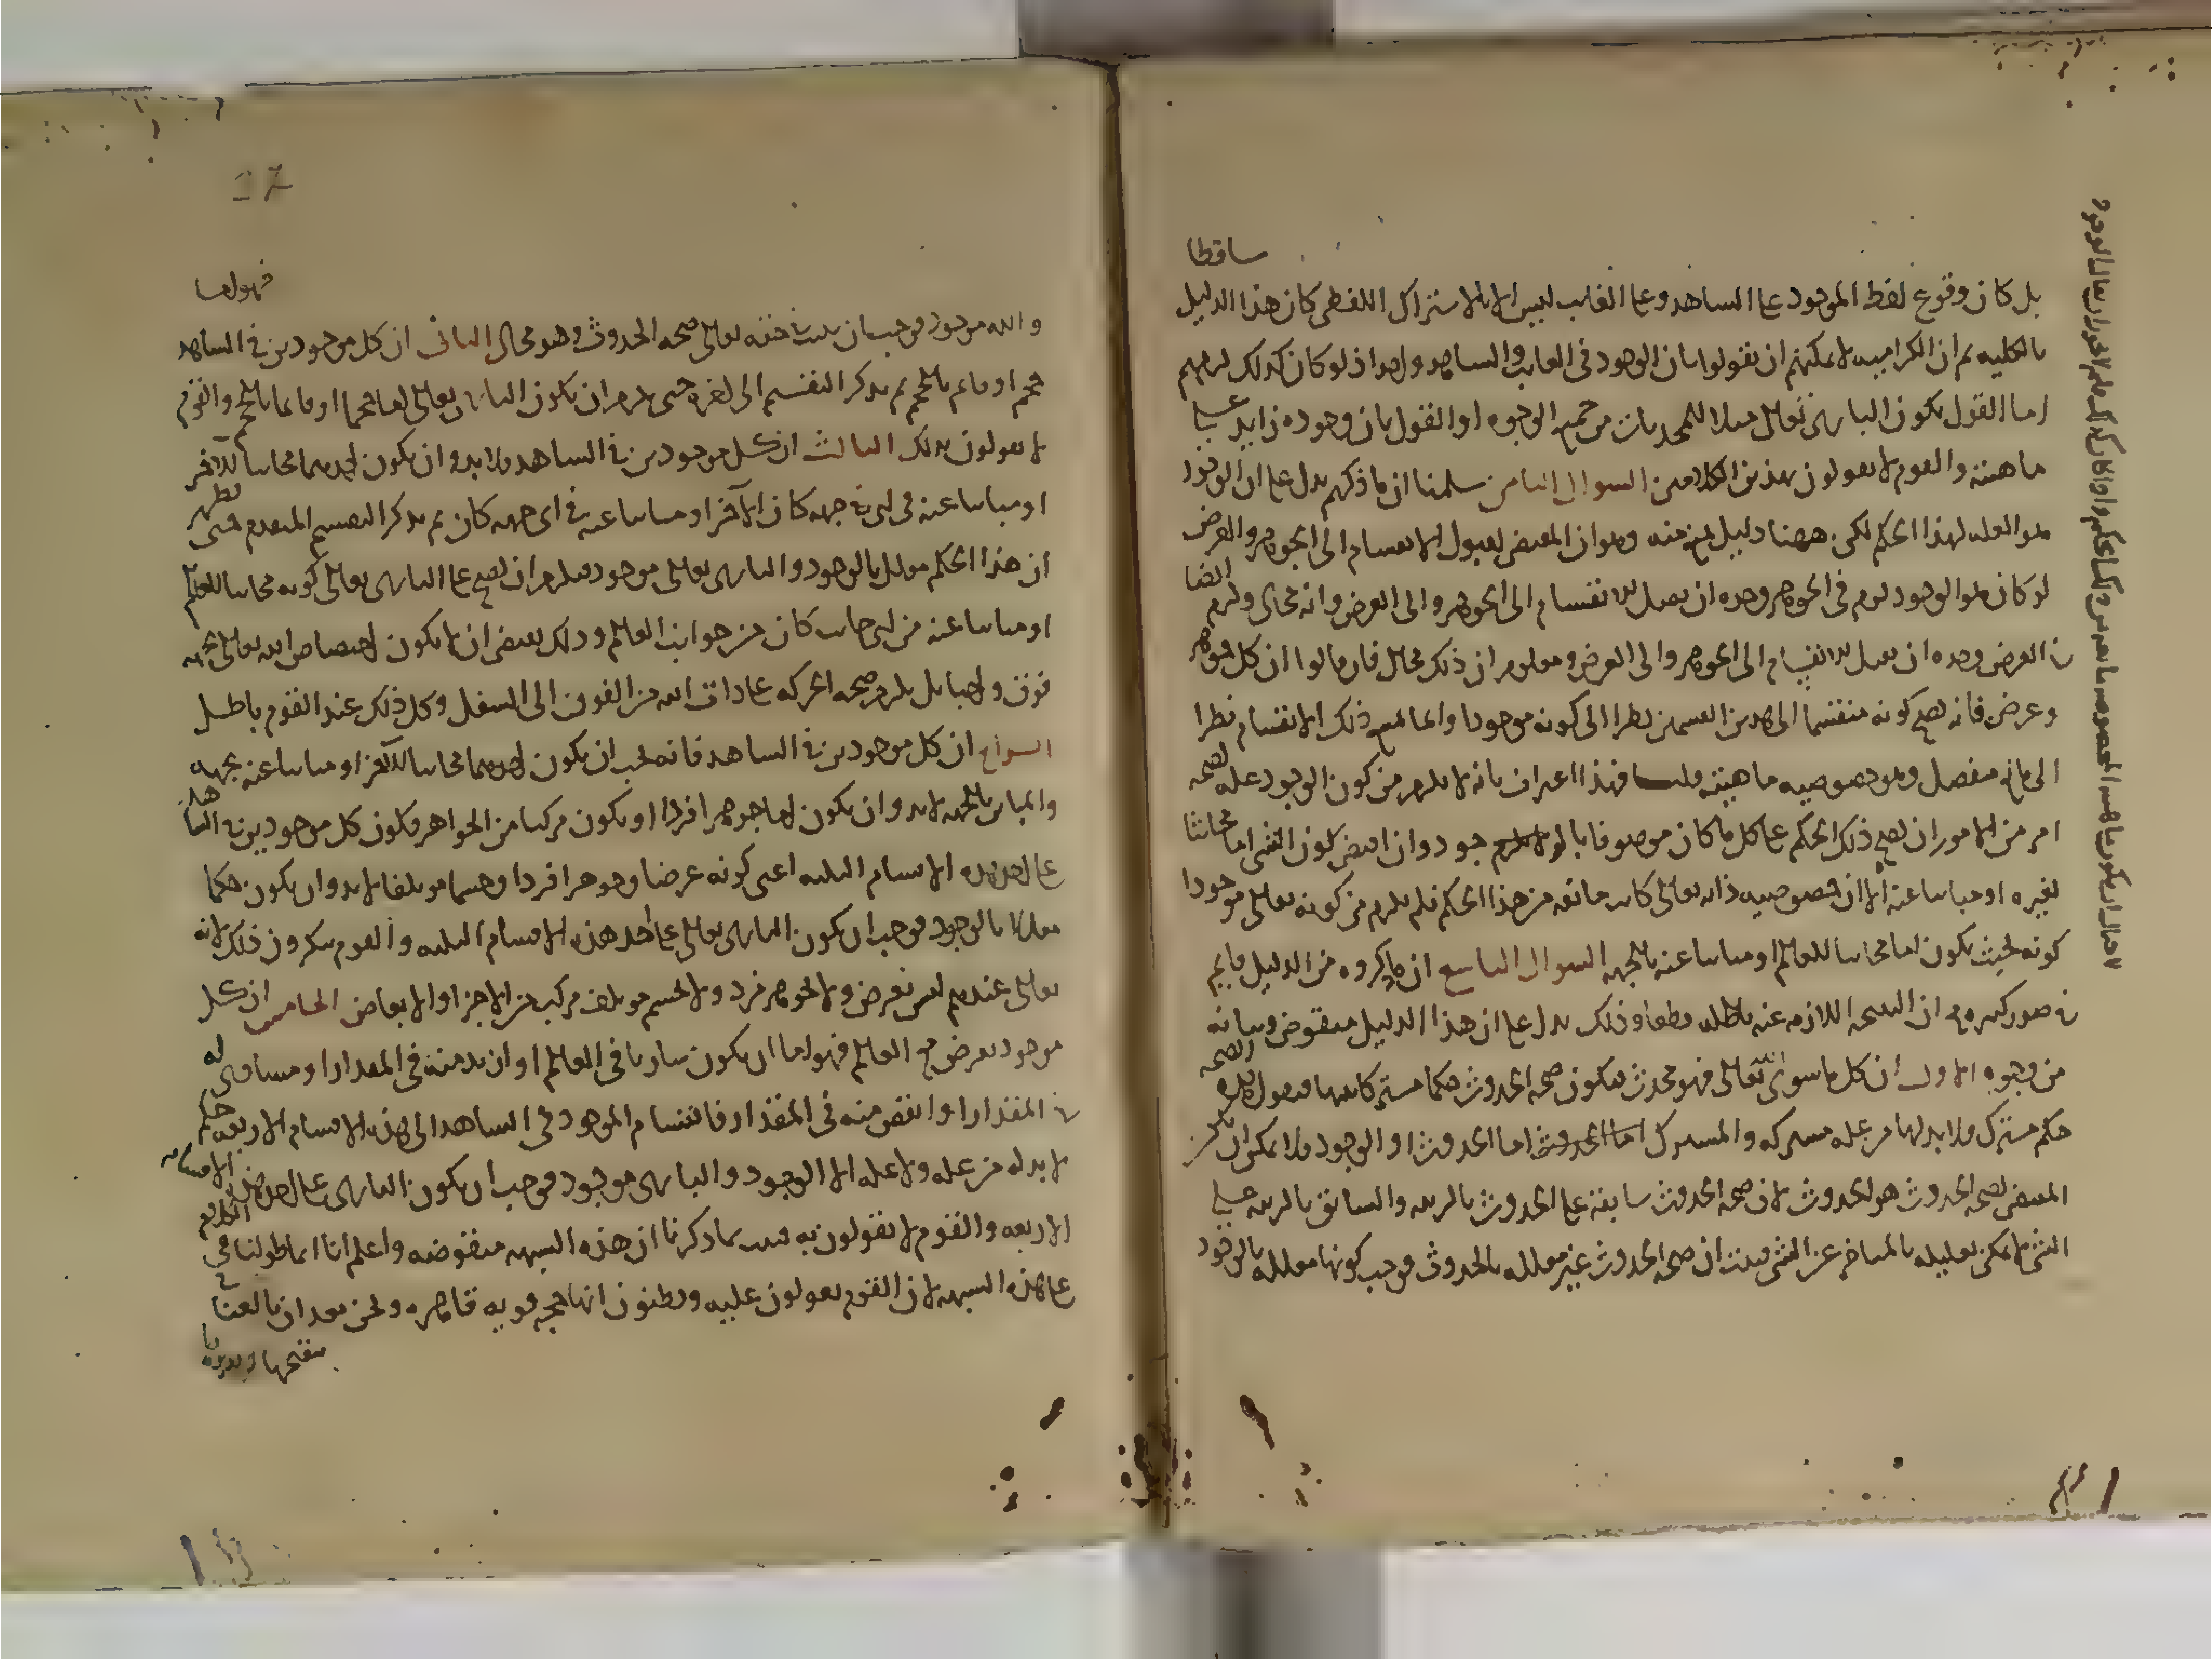 ساقطا
بل كان وقوع لفظ الموجود على الشاهد وعلى الغايب ليس الا بالاشتراك اللفظي كان هذا الدليل
بالكليه ثم ان الكراميه لا يمكنهم ان يقولوا بان الوجود في الغايب والشاهد واحد اذ لو كان كذلك لزمهم
اما القول بكون الباري تعالى مثلا للمحدثات من جميع الوجوه او القول بان وجوده زايد على
ماهيته والقوم لا يقولون بهذين الكلامين السوال الثامن سلمنا ان ما ذكرتم يدل على ان الوجود
هو العله لهذا الحكم لكن ههنا دليل يمنع منه وهو ان المقتضى لقبول الانقسام الى الجوهر والعرض
لو كان هو الوجود لزم في الجوهر وحده ان يقبل الانقسام الى الجوهر والى العرض وانه محال ولزم ايضا
في العرض وحده ان يقبل الانقسام الى الجوهر والى العرض ومعلوم ان ذلك محال فان قالوا ان كل جوهر
وعرض فانه يصح كونه منقسما الى هذين القسمين نظرا الى كونه موجودا وانما يمتنع ذلك الانقسام نظرا
الى مانع منفصل وهو خصوصيه ماهيته قلنا فهذا اعتراف بانه لا يلزم من كون الوجود عله لصحة
امر من الامور ان يصح ذلك الحكم على كل ما كان موصوفا بالوجود وان اقتضى كون الشي اما محايثا
لغيره او مباينا عنه الا ان خصوصيه ذاته تعالى كانت مانعه من هذا الحكم فلم يلزم من كونه تعالى موجودا
كونه بحيث يكون اما محايثا للعالم او مباينا عنه بالجهه السوال التاسع ان ما ذكروه من الدليل قايم
في صور كثيره مع ان النتيجه اللازمه عنه باطله قطعا وذلك يدل على ان هذا الدليل منقوض وبيانه
من وجوه الاول ان كل ما سوى الله تعالى فهو محدث فيكون صحه الحدوث حكما مشتركا بينها فنقول هذه الصحه
حكم مشترك ولا بد لها من عله مشتركه والمشترك اما الحدوث او الوجود ولا يمكن ان يكون
المقتضى لصحه الحدوث هو الحدوث لان صحه الحدوث سابقه على الحدوث بالرتبه والسابق بالرتبه على
الشي لا يمكن تعليله بالمتاخر عن الشي فثبت ان صحه الحدوث غير معلله بالحدوث فوجب كونها معلله بالوجود
والله موجود فوجب ان يثبت في حقه تعالى صحه الحدوث وهو محال الثاني ان كل موجودين في الشاهد فهو اما
حجم او قايم بالحجم ثم يذكر التقسيم الى اخره حتى يلزم ان يكون الباري تعالى اما حجما او قايما بالحجم والقوم
لا يقولون بذلك الثالث ان كل موجودين في الشاهد ولا بد وان يكون احدهما محايثا للاخر
او مباينا عنه في اي جهه كان ثم يذكر التقسيم المتقدم حتى يظهر
ان هذا الحكم معلل بالوجود والباري تعالى موجود فيلزم ان يصح على الباري تعالى كونه محايثا للعالم
او مباينا عنه من اي جانب كان من جوانب العالم وذلك يقتضي ان لا يكون اختصاص الله تعالى بجهه
فوق واجبا بل يلزم صحه الحركه على ذات الله من الفوق الى السفل وكل ذلك عند القوم باطل
الرابع ان كل موجودين في الشاهد فانه يجب ان يكون احدهما محايثا للاخر او مباينا عنه بجهه
والمباين بالجهه لا بد وان يكون اما جوهرا فردا او يكون مركبا من الجواهر فكون كل موجودين في الشاهد
على احد هذه الاقسام الثلثه اعني كونه عرضا وجوهرا فردا وجسما موتلفا لا بد وان يكون حكما
معللا بالوجود فوجب ان يكون الباري تعالى على احد هذه الاقسام الثلثه والقوم ينكرون ذلك لانه
تعالى عندهم ليس بعرض ولا بجوهر فرد ولا بجسم موتلف مركب من الاجزا والابعاض الخامس ان كل
موجود يفرض مع العالم فهو اما ان يكون ساريا في العالم او ازيد منه في المقدار او مساوي له
في المقدار او انقص منه في المقدار فانقسام الموجود في الشاهد الى هذه الاقسام الاربعه حكم
لا بد له من عله ولا عله الا الوجود والباري موجود فوجب ان يكون الباري على احد هذه الاقسام
الاربعه والقوم لا يقولون به فثبت بما ذكرنا ان هذه الشبهه منقوضه واعلم انا انما طولنا في الكلام
على هذه الشبهه لان القوم يعولون عليه ويظنون انها حجه قويه قاهره ونحن بعد ان بالغنا في
تنقيحها